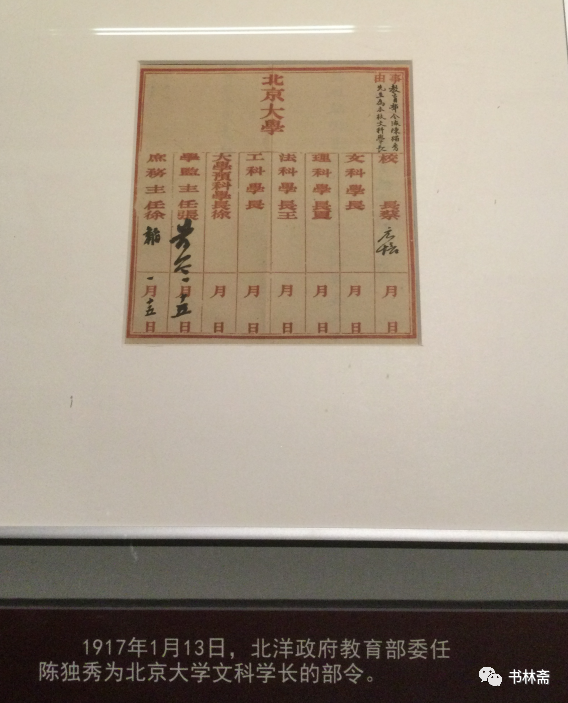 事由 教育部令派陳獨秀
先生為本校文科學長
北京大學
校長蔡 元培 月 日
文科學長 月 日
理科學長夏 月 日
法科學長王 月 日
工科學長 月 日
大學預科學長徐 月 日
學監主任張 一月十五日
庶務主任徐 一月十五日
1917年1月13日，北洋政府教育部委任
陈独秀为北京大学文科学长的部令。
书林斋